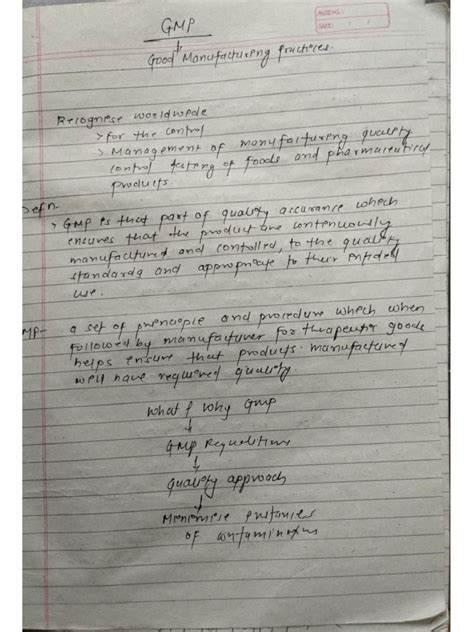 GMP
PAGE NO.:
DATE: / /
Good Manufacturing practices.
Recognise worldwide
> for the control
> Management of manufacturing quality
control testing of foods and pharmaceutical
products.
Defn-
> GMP is that part of quality assurance which
ensures that the product are continuously
manufactured and controlled, to the quality
standards and appropriate to their intended
use.
MP- a set of principle and procedure which when
followed by manufacturer for therapeutic goods
helps ensure that products manufactured
well have required quality.
What & Why GMP
↓
GMP Regualitions
↓
Quality approach
↓
Minimise
of contaminations